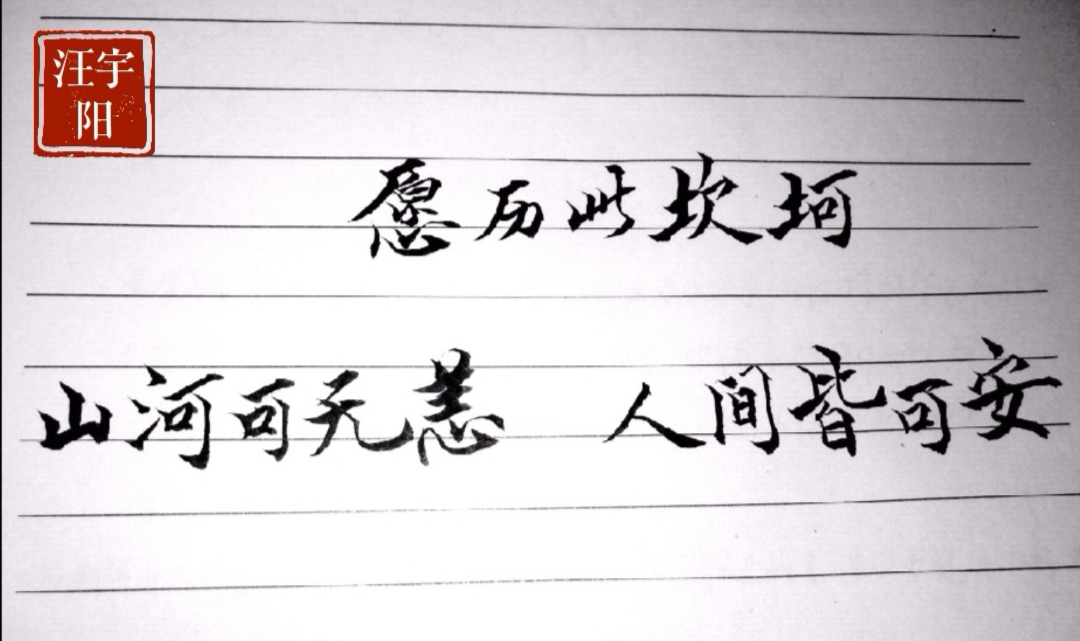 汪宇
阳
愿历此坎坷
山河可无恙 人间皆可安